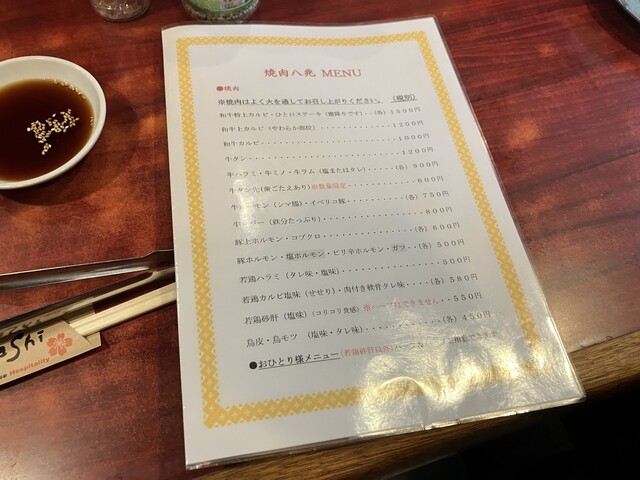 焼肉八兆 MENU
●焼肉
※焼肉はよく火を通してお召し上がりください。 (税別)
和牛特上カルビ・ひと口ステーキ (霜降りです)・・(各) 1500円
和牛上カルビ (やわらか部位)・・・・・・・・・・・1200円
和牛カルビ・・・・・・・・・・・・・・・・・・1000円
牛タン・・・・・・・・・・・・・・・・・・・・1200円
牛ハラミ・牛ミノ・生ラム (塩またはタレ)・・・・(各) 900円
牛タン先(歯ごたえあり)※数量限定・・・・・・・・・600円
(シマ腸)・イベリコ豚・・・・・・・・(各) 750円
(鉄分たっぷり)・・・・・・・・・・・・800円
豚上ホルモン・コブクロ・・・・・・・・・・・(各) 600円
豚ホルモン・塩ホルモン・ピリ辛ホルモン・ガツ・・(各) 500円
若鶏ハラミ (タレ味・塩味)・・・・・・・・・・・・500円
若鶏カルビ塩味 (せせり)・肉付き軟骨タレ味・・・・(各) 580円
若鶏砂肝 (塩味) (コリコリ食感) ※ハーフはできません・・550円
鳥皮・鳥モツ (塩味・タレ味)・・・・・・・・・・・(各) 450円
●おひとり様メニュー(若鶏砂肝以外)
shi
Hospitality